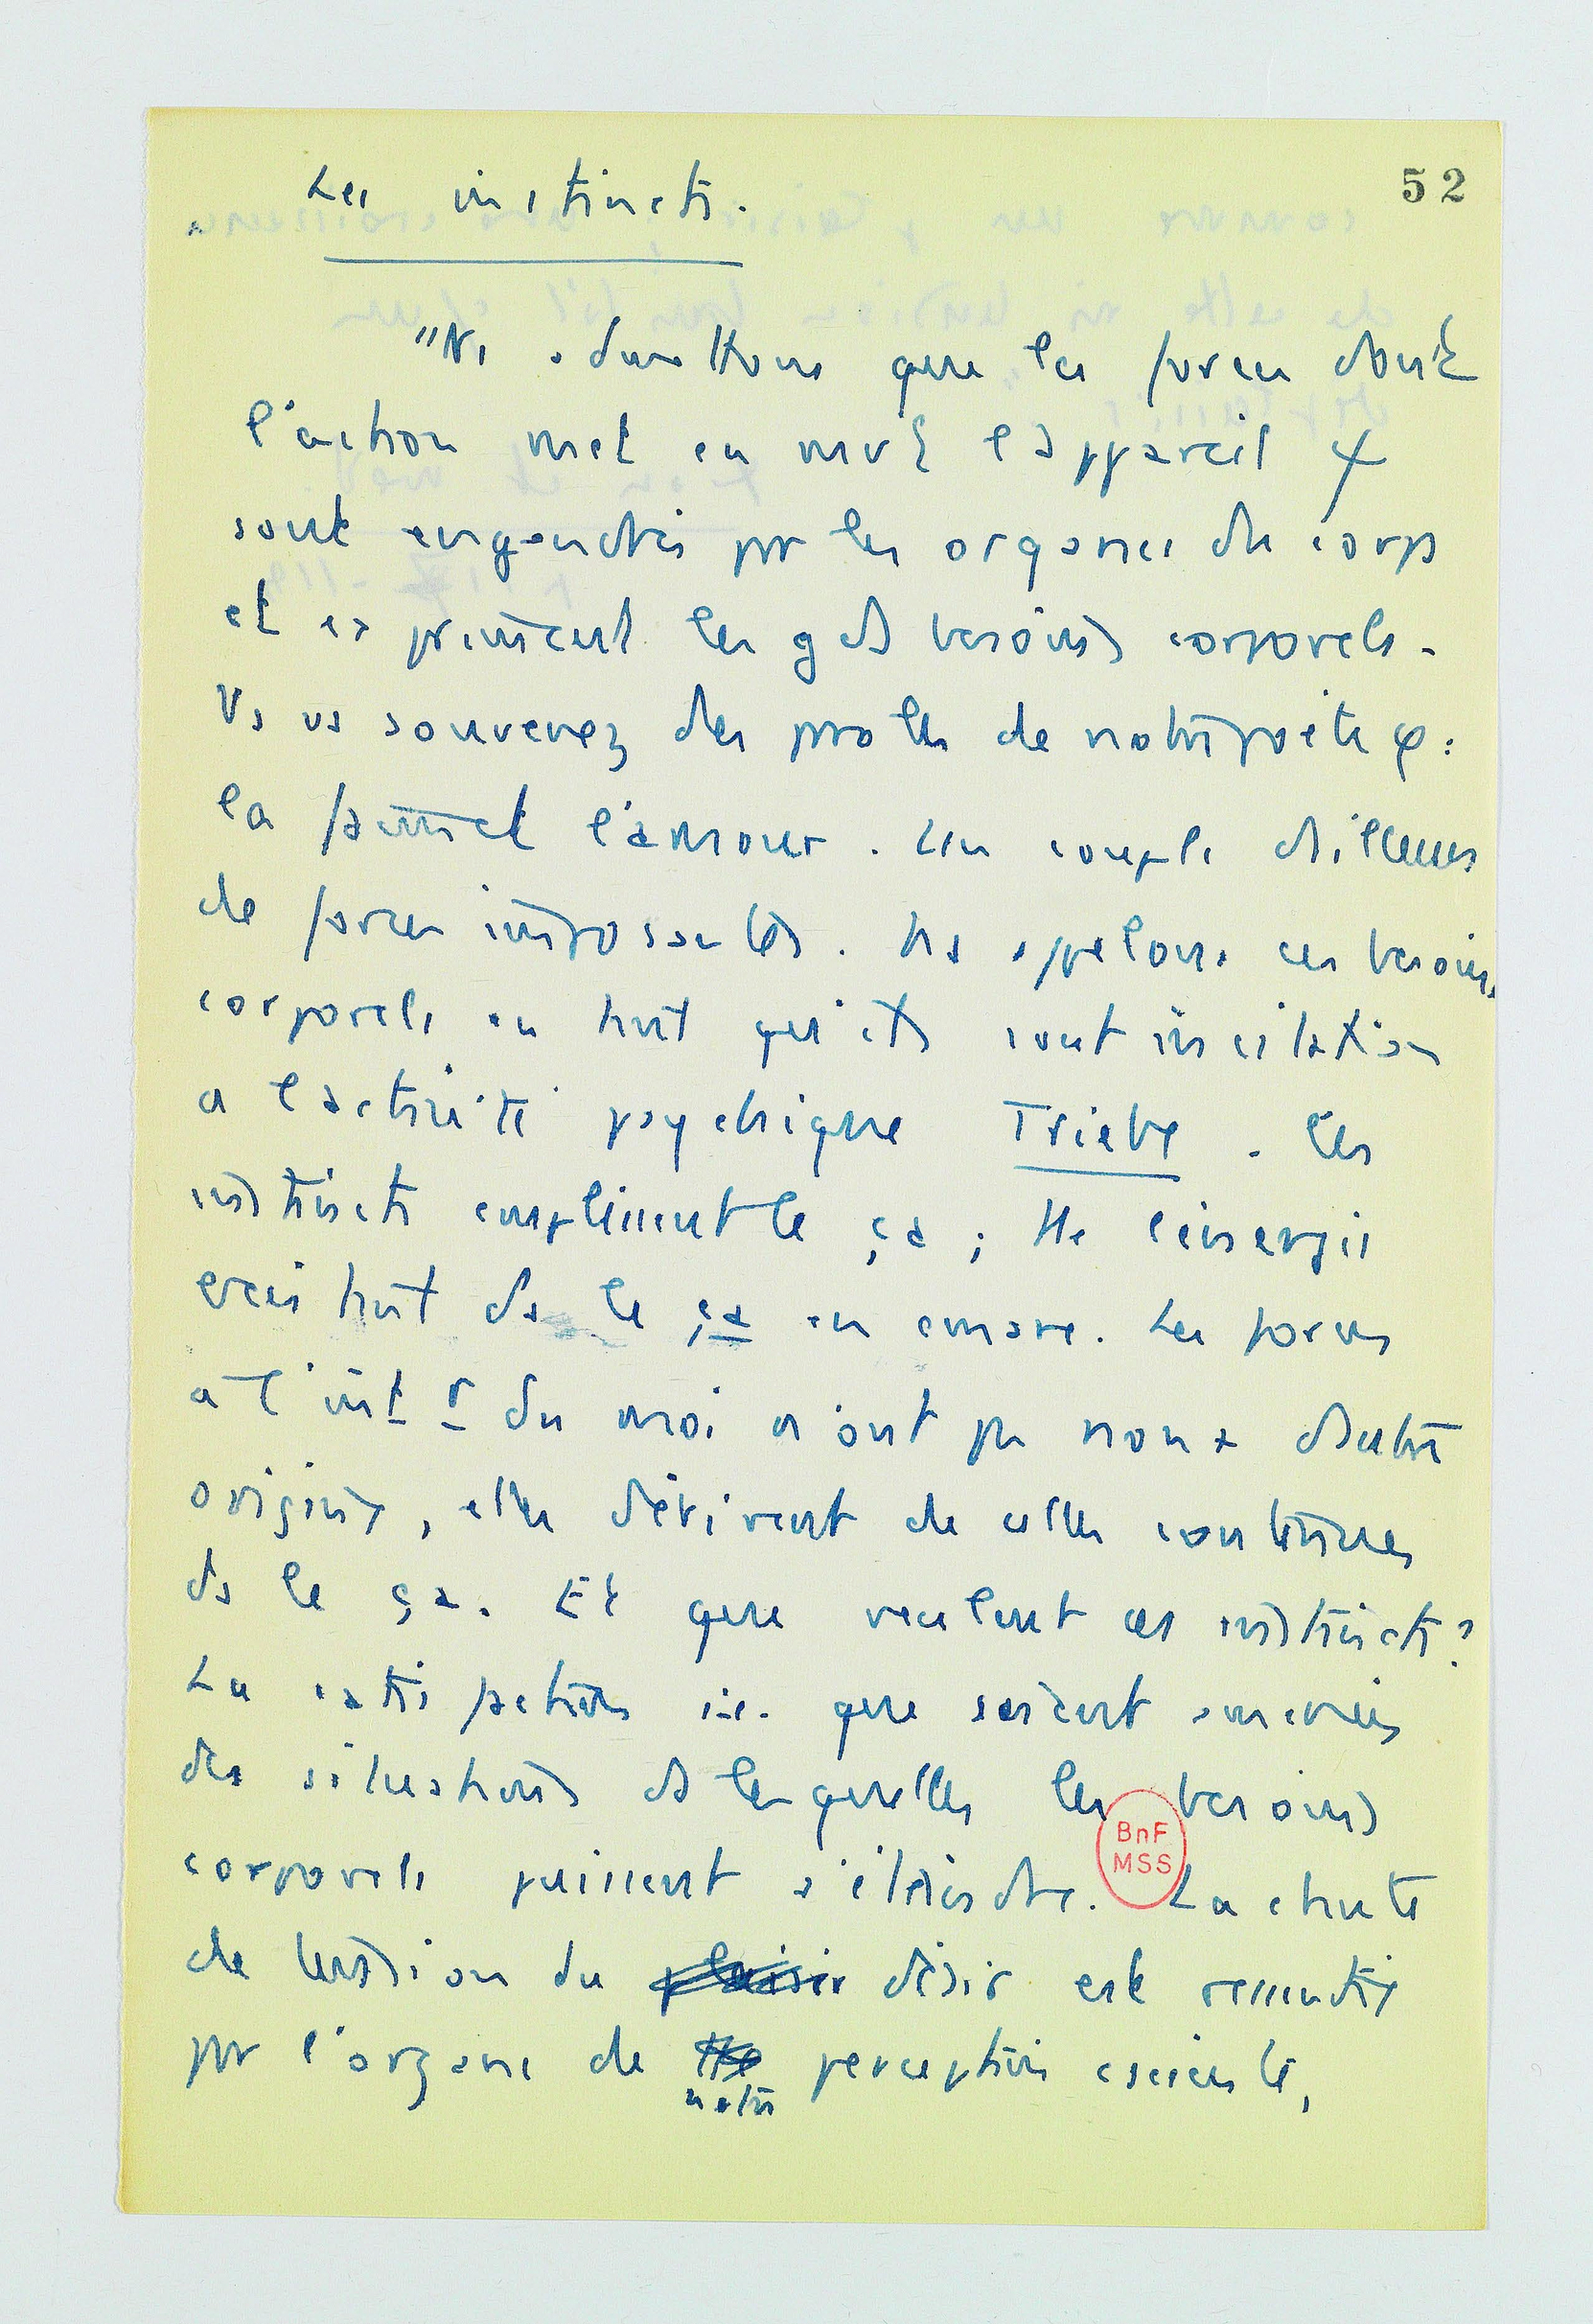 52
Les instincts.
"Ns admettons que les forces dont
l'action met en mvt l'appareil ψ
sont engendrées pr les organes du corps
et expriment les gds besoins corporels.
Vs vs souvenez des paroles de notre poète φ :
la faim et l'amour. Un couple d'ailleurs
de forces imposantes. Ns appelons ces besoins
corporels en tant qu'ils sont incitation
a l'activité psychique Triebe. Ces
instincts emplissent le ça ; tte l'énergie
ds le ça en émane. Les forces
a l'intr du moi n'ont pas non + d'autre
origine, elles dérivent de celles contenues
ds le ça. Et que veulent ces instincts ?
La satisfaction i.e. que soient amenées
des situations ds lesquelles les besoins
corporels puissent s'éteindre. La chute
de tension du plaisir désir est ressentie
pr l'organe de tte perception csciente,
notre
BnF
MSS